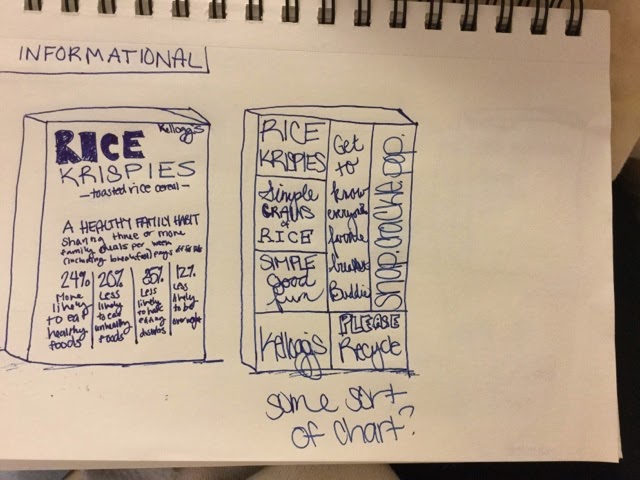 INFORMATIONAL
Kellogg's
RICE
KRISPIES
-toasted rice cereal-
A HEALTHY FAMILY HABIT
Sharing three or more
family meals per week
(including breakfast) pays off for kids
24%
More
likely
to eat
healthy
foods
20%
Less
likely
to eat
unhealthy
foods
35%
Less
likely
to have
eating
12%
Less
likely
to be
overweight
RICE
KRISPIES
Simple
GRAINS
of
RICE
SIMPLE
Good
fun
Kellogg's
Get
to
know
everyone's
favorite
breakfast
Buddies
snap.crackle.pop.
PLEASE
Recycle
some sort
of chart?